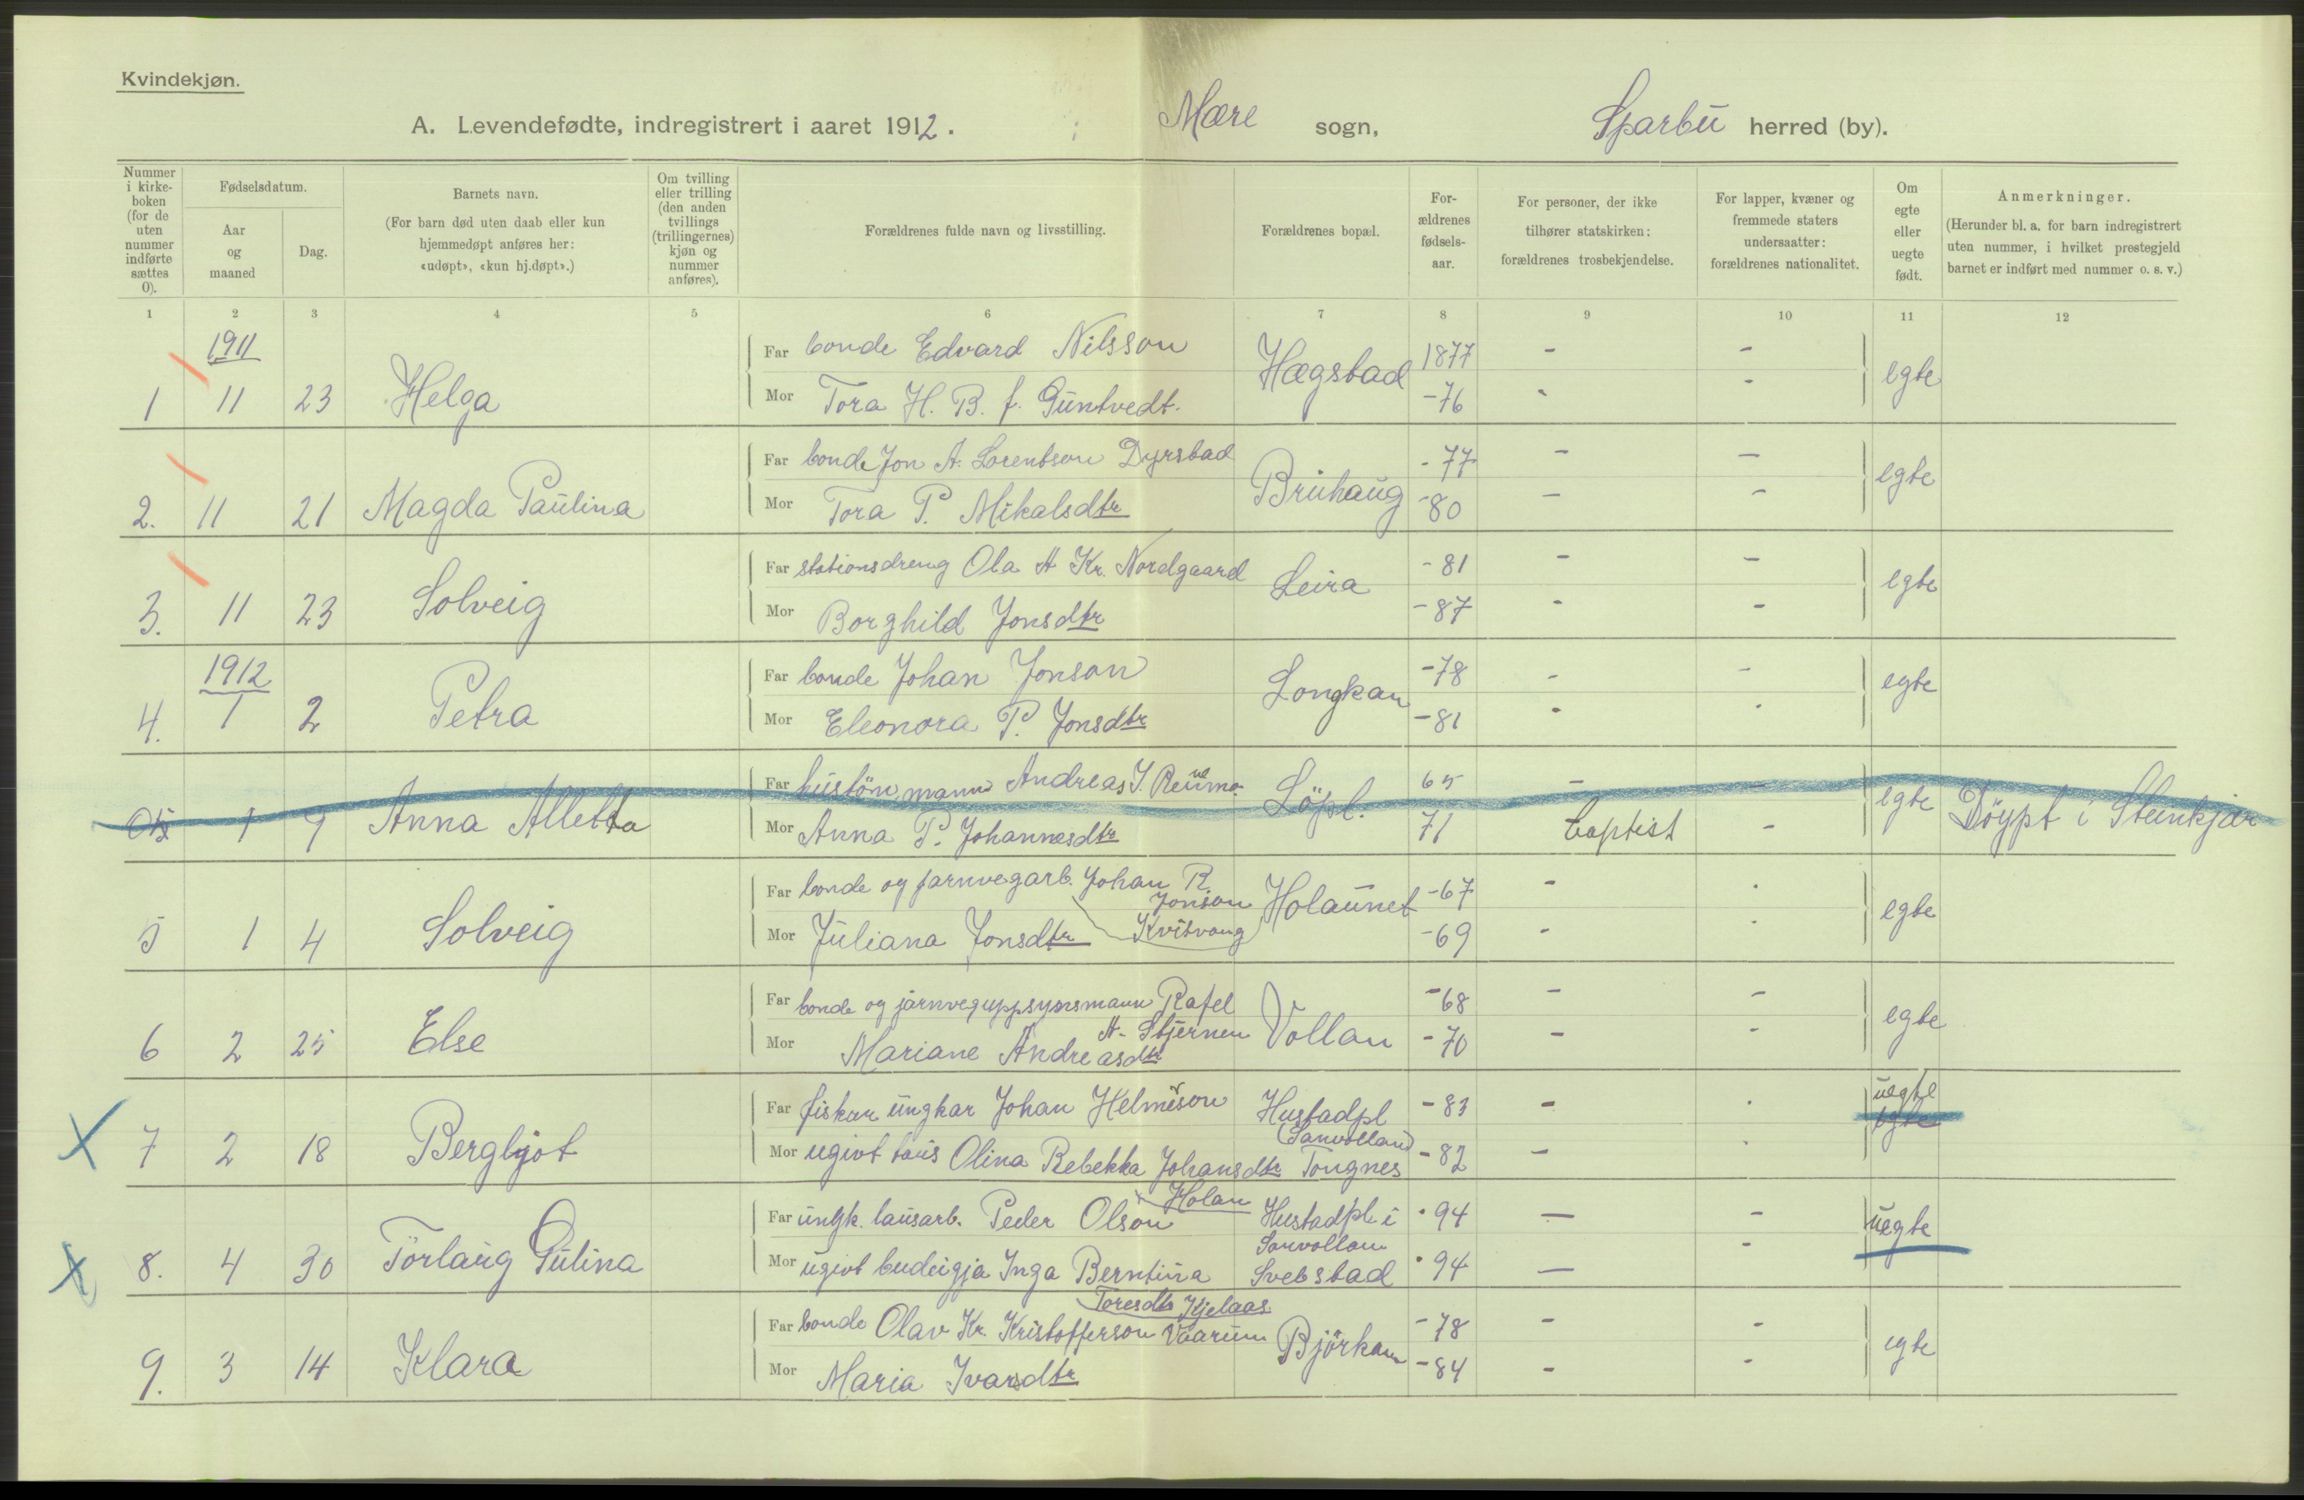 Kvindekjøn.
A. Levendefødte, indregistrert i aaret 1912. Mære sogn, Sparbu herred (by).
Nummer i kirke-boken (for de uten nummer indførte sættes 0).
Fødselsdatum.
Aar og maaned
Dag.
Barnets navn.
(For barn død uten daab eller kun hjemmedøpt anføres her: «udøpt», «kun hj.døpt».)
Om tvilling eller trilling (den anden tvillings (trillingernes) kjøn og nummer anføres).
Forældrenes fulde navn og livsstilling.
Forældrenes bopæl.
For-ældrenes fødsels-aar.
For personer, der ikke tilhører statskirken: forældrenes trosbekjendelse.
For lapper, kvæner og fremmede staters undersaatter: forældrenes nationalitet.
Om egte eller uegte født.
Anmerkninger.
(Herunder bl. a. for barn indregistrert uten nummer, i hvilket prestegjeld barnet er indført med nummer o. s. v.)
1 2 3 4 5 6 7 8 9 10 11 12
1911
Far bonde Edvard Nilsson Hægstad 1877 - -
1 11 23 Helga Mor Tora H. B. f. Guntvedt. -76 - - egte
Far bonde Jon A. Lorentson Dyrstad Bruhaug -77 - -
2. 11 21 Magda Paulina Mor Tora P. Mikalsdtr -80 - - egte
Far stationsdreng Ola A Kr. Nordgaard Leira -81 - -
3. 11 23 Solveig Mor Borghild Jonsdtr -87 - - egte
1912
Far bonde Johan Jonson Longkan -78 - -
4. 1 2 Petra Mor Eleonora P. Jonsdtr -81 - - egte
Far mann Andreas J. Löpl. 65 - -
1 9 Anna Alletta Mor Anna P. Johannesdtr 71 baptist - egte Döypt i Steinkjær
Far bonde og jarnvegarb. Johan R. Jonson Kvitvang Holaunet -67 - -
5 1 4 Solveig Mor Juliana Jonsdtr -69 - - egte
Far bonde og jarnveguppsynsmann Rafel A. Stjernen Vollan -68 - -
6 2 25 Else Mor Mariane Andreasdtr -70 - - egte
Far fiskar ungkar Johan Helmerson Hustadpl (Sanvollan) -83 - - uegte
7 2 18 Bergljot Mor ugivt taus Olina Rebekka Johansdtr Tongnes -82 - - egte
Far ungk. lausarb. Peder Olson Holan Hustadpl i Sanvollan 94 - -
8. 4 30 Torlaug Gulina Mor ugivt budeigja Inga Berntina Toresdtr Kjelaas Svebstad 94 - - uegte
Far bonde Olav Kr. Kristofferson Vaarum Björkan -78 - -
9. 3 14 Klara Mor Maria Ivarsdtr -84 - - egte